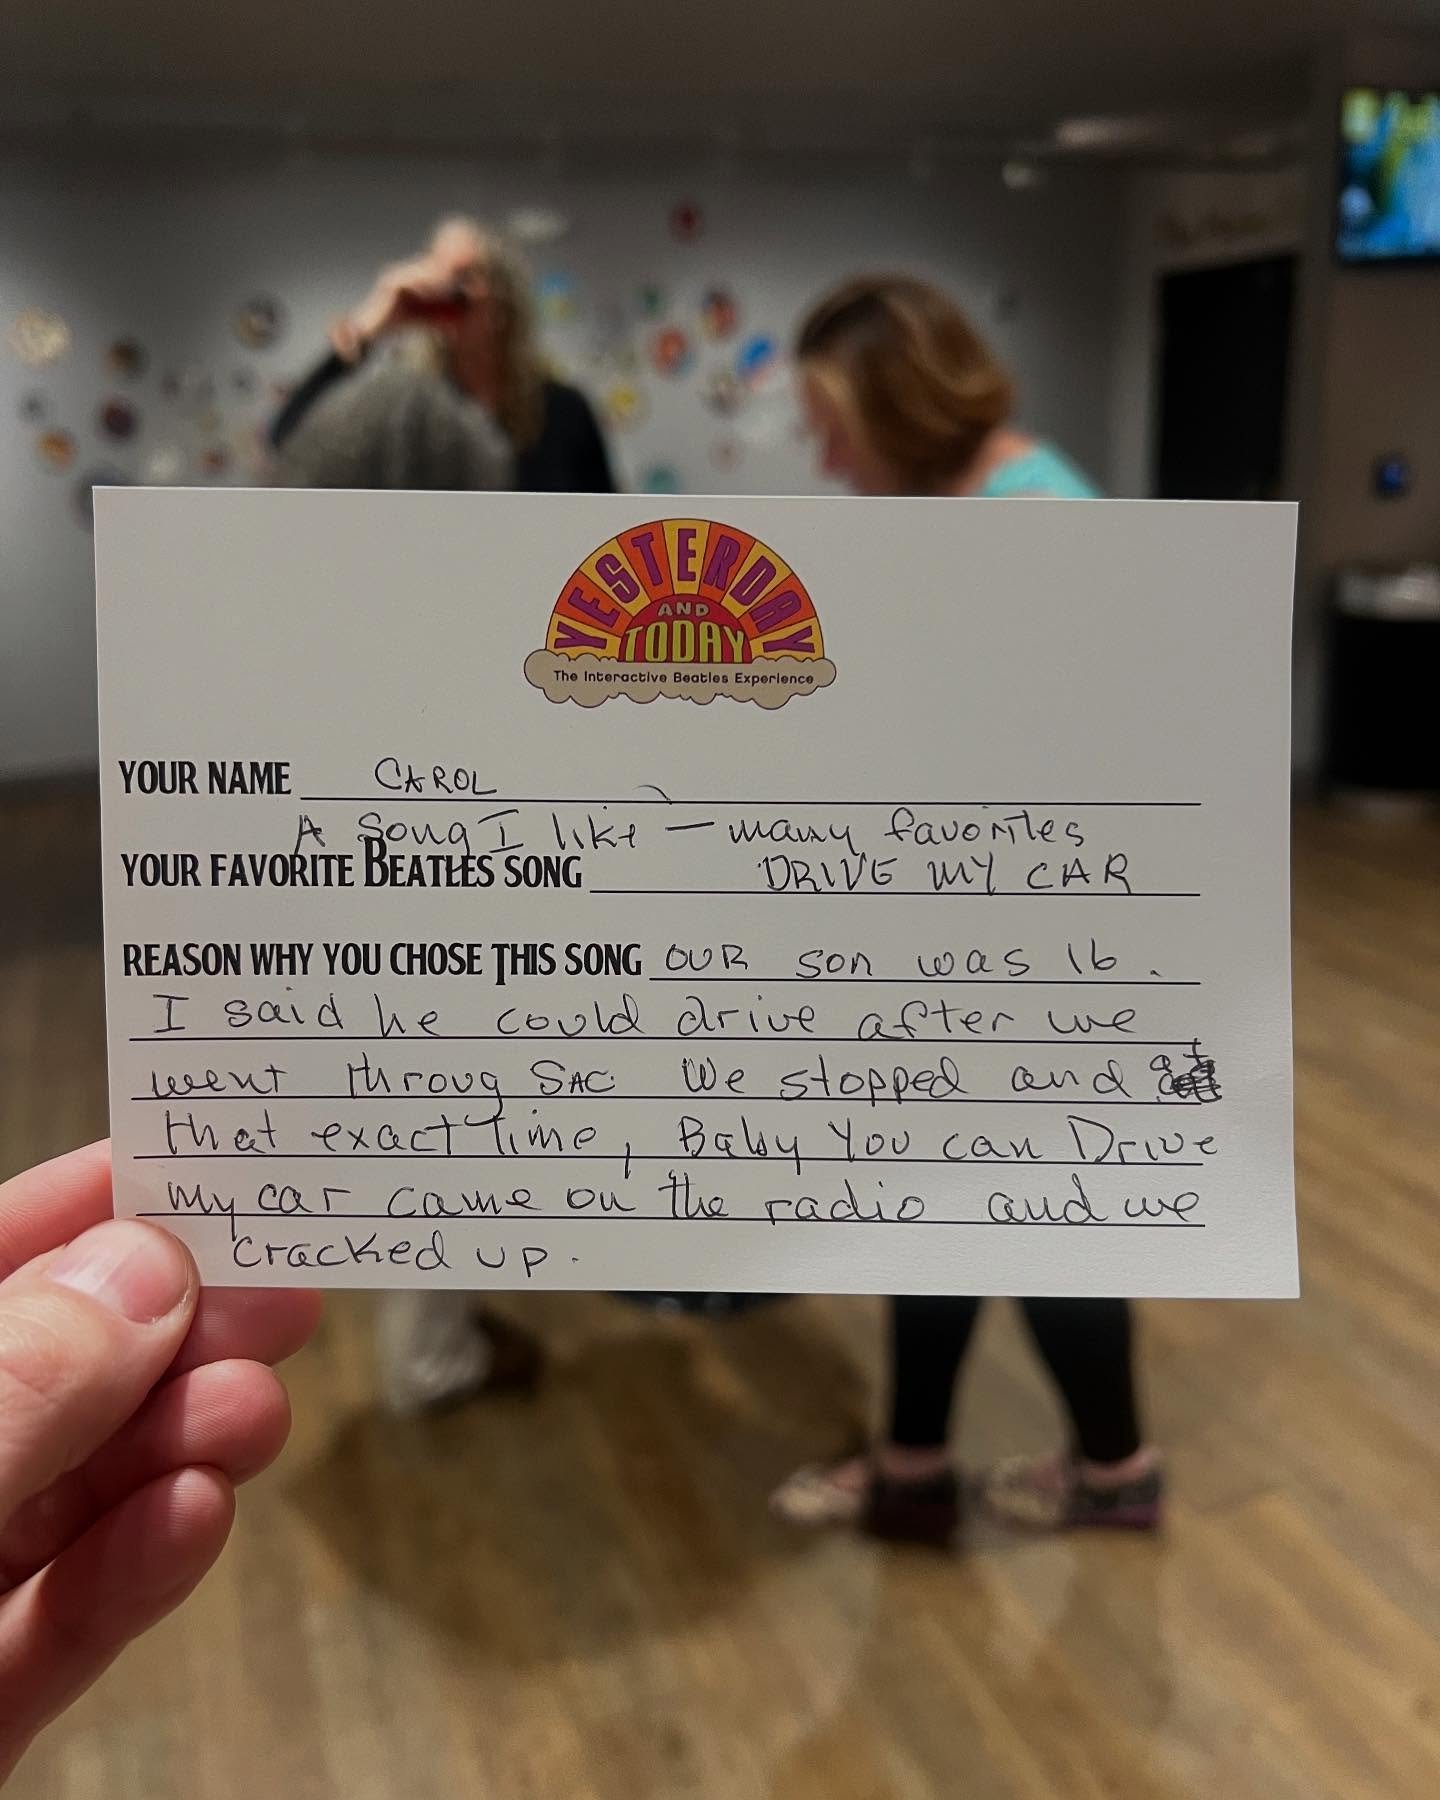 YESTERDAY
AND
TODAY
The Interactive Beatles Experience
YOUR NAME CAROL
A Song I like — many favorites
YOUR FAVORITE BEATLES SONG DRIVE MY CAR
REASON WHY YOU CHOSE THIS SONG OUR son was 16.
I said he could drive after we
went throug SAC. We stopped and at
that exact time, Baby You can Drive
my car came on the radio and we
cracked up.